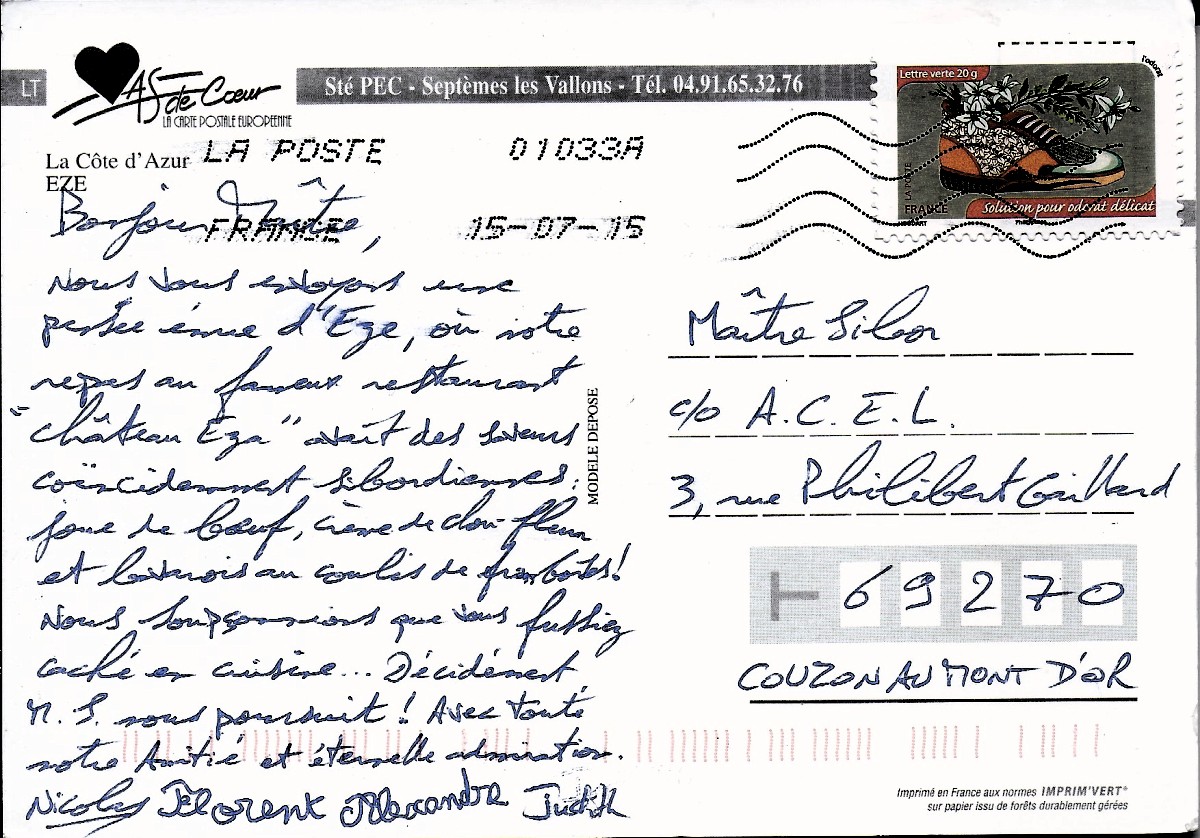 LT
AS de Cœur
LA CARTE POSTALE EUROPEENNE
Sté PEC - Septèmes les Vallons - Tél. 04.91.65.32.76
La Côte d'Azur
EZE
LA POSTE 01033A
FRANCE 15-07-15
Lettre verte 20 g
l'odorat
LA POSTE
FRANCE
Solution pour odorat délicat
Bonjour Maître,
Nous vous envoyons une
pensée émue d'Eze, où notre
repas au fameux restaurant
"Château Eza" avait des saveurs
coïncidemment sibordiennes:
joue de bœuf, crème de chou-fleur
et bavarois au coulis de framboises!
Nous soupçonnions que vous fussiez
caché en cuisine... Décidément
M. S. nous poursuit! Avec toute
notre Amitié et éternelle admiration.
Nicolas Florent Alexandre Judith
MODELE DEPOSE
Maître Sibor
c/o A.C.E.L.
3, rue Philibert Gaillard
69270
COUZON AU MONT D'OR
Imprimé en France aux normes IMPRIM'VERT®
sur papier issu de forêts durablement gérées